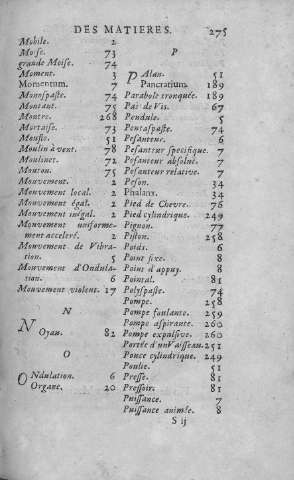 DES MATIERES. 275
Mobile. 2
Moise. 73
grande Moise. 74
Moment. 3
Momentum. 7
Monospaste. 74
Montant. 75
Montre. 268
Mortaise. 73
Moufle. 51
Moulin à vent. 78
Moulinet. 72
Mouton. 75
Mouvement. 2
Mouvement local. 2
Mouvement égal. 2
Mouvement inégal. 2
Mouvement uniforme-
ment acceleré. 2
Mouvement de Vibra-
tion. 5
Mouvement d'Ondula-
tion. 6
Mouvement violent. 17
N
NOyau. 82
O
ONdulation. 6
Organe. 20
P
PAlan. 51
Pancratium. 189
Parabole tronquée. 189
Pas de Vis. 67
Pendule. 5
Pentaspaste. 74
Pesanteur. 6
Pesanteur specifique. 7
Pesanteur absoluë. 7
Pesanteur relative. 7
Peson. 34
Phalanx. 34
Pied de Chevre. 76
Pied cylindrique. 249
Pignon. 77
Piston. 258
Poids. 6
Point fixe. 8
Point d'appuy. 8
Pointal. 81
Polyspaste. 74
Pompe. 258
Pompe foulante. 259
Pompe aspirante. 260
Pompe expulsive. 260
Portée d'un Vaisseau. 251
Pouce cylindrique. 249
Poulie. 51
Presse. 81
Pressoir. 81
Puissance. 7
Puissance animée. 8
S ij